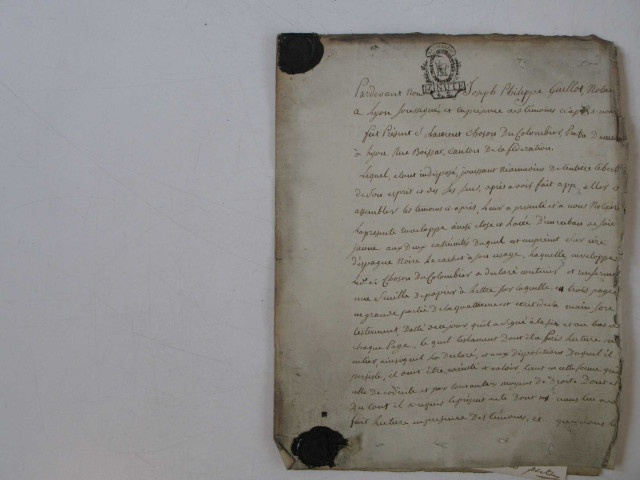 MINUTE
Pardevant Nous Joseph Philippe Guillot, Notaire
a Lyon soussigné, et en presence des témoins ci après nommés
fut Présent S. Laurent Choson Du Colombier, 
à Lyon Rue Boissac, Canton de la féderation.
Lequel, étant indisposé, jouissant néanmoins de l'entière liberté
de son esprit et de ses sens, après avoir fait appeller et
assembler les témoins ci après, leur a presenté et a nous Notaire
la presente enveloppe ainsi close et lacée d'un ruban de soie
jaune aux deux extrémités duquel est empreint sur cire
d'espagne Noire le cachet a son usage, laquelle enveloppe
led. S. Choson Du Colombier a déclaré contenir et renfermer
une feuille de papier à Lettre sur laquelle trois pages
en grande partie de la quatrieme est écrit de sa main son
testament, datté de ce jour qu'il a signé à la fin et au bas de
chaque Page, le quel testament dont il a fait lecture en
entier, ainsi qu'il l'a déclaré, et aux dispositions duquel il
persiste, il veut être, vaille et valoir tant en cette forme que
celle de codicile et par tous autres moyens de droit. Dont et
du tout il a requis le present acte dont nous lui avons
fait lecture en presence des témoins, et que nous